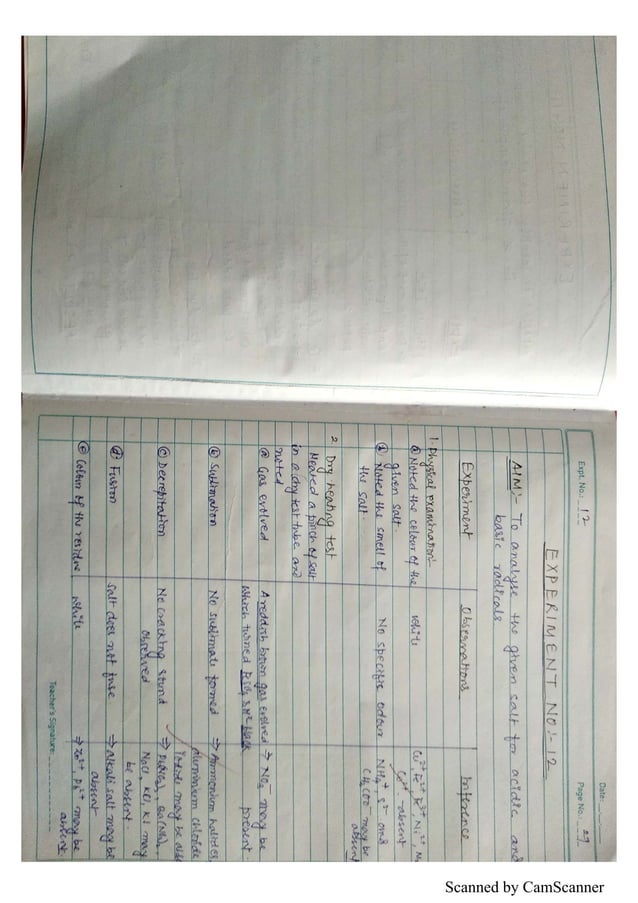 Date:
Expt. No.: 12
Page No.: 29
EXPERIMENT NO:- 12
AIM:- To analyse the given salt for acidic and
basic radicals.
Experiment Observations Inference
1. Physical examination:-
ⓐ Noted the colour of the given salt. white
Cu²⁺, Fe²⁺, Fe³⁺, Ni²⁺,
absent
Noted the smell of the salt. No specific odour
NH₄⁺, S²⁻ and CH₃COO⁻ may be absent
2. Dry heating test
Heated a pinch of salt
in a dry test tube and
noted
ⓐ Gas evolved A reddish brown gas evolved → NO₃⁻ may be present.
which turned black
ⓑ Sublimation No sublimate formed ⇒ Ammonium halides,
Aluminium chloride
Iodide may be
ⓒ Decrepitation No cracking sound observed ⇒
NaCl, KCl, KI may
be absent.
ⓓ Fusion Salt does not fuse ⇒ Alkali salt may be
absent
ⓔ Colour of the residue white ⇒ Zn²⁺ Pb²⁺ may be
absent.
Teacher's Signature:
Scanned by CamScanner